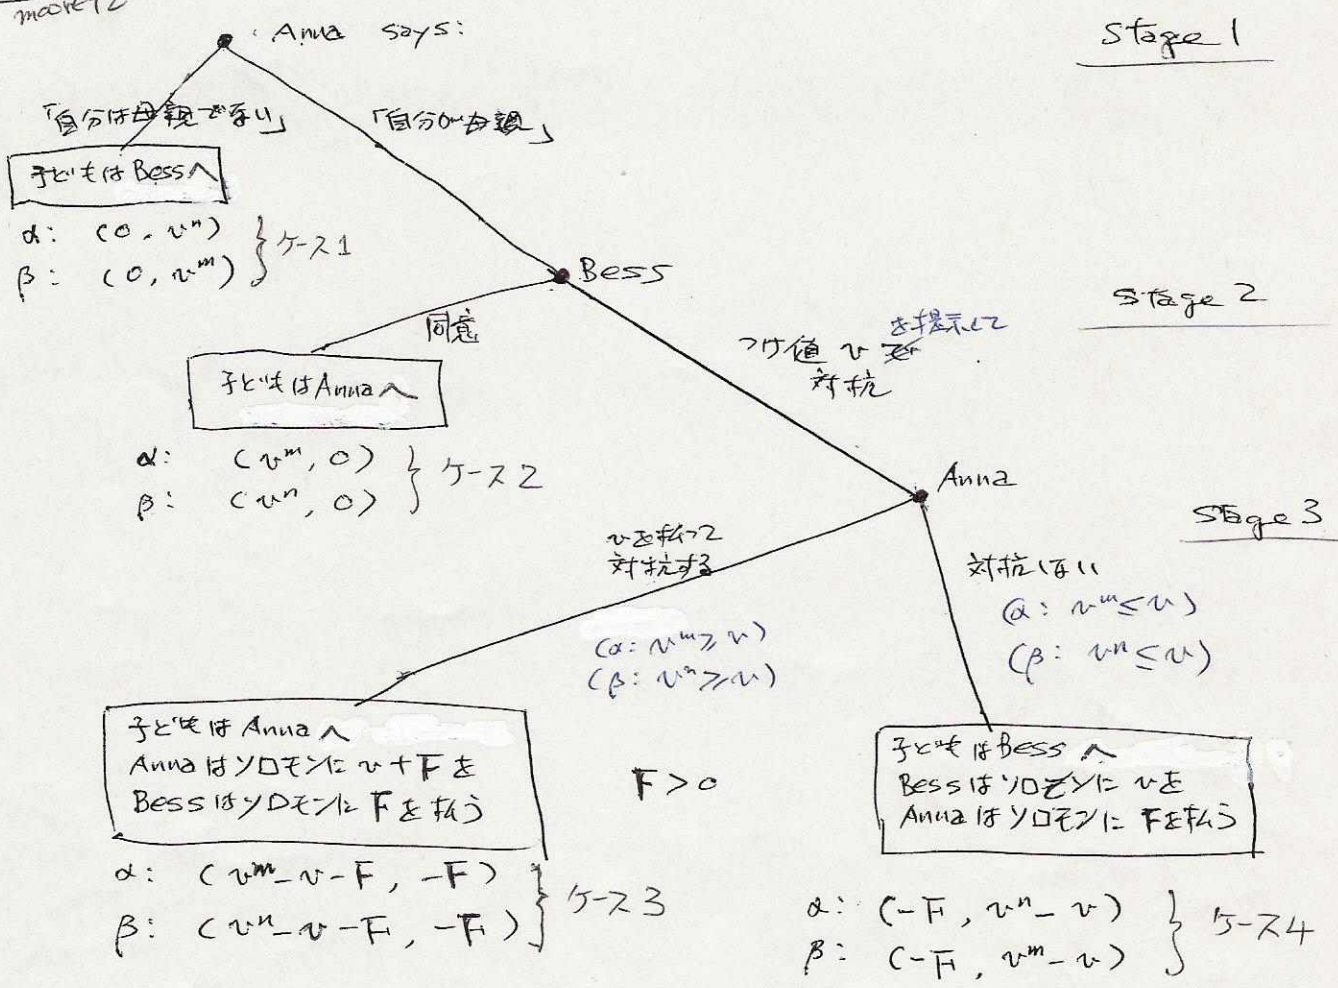 moore12
Anna says:
Stage 1
「自分は母親でない」
「自分が母親」
子どもはBessへ
α: (0, vⁿ)
β: (0, vᵐ)
ケース1
Bess
Stage 2
同意
つけ値 v を提示して
対抗
子どもはAnnaへ
α: (vᵐ, 0)
β: (vⁿ, 0)
ケース2
Anna
Stage 3
vを払って
対抗する
(α: vᵐ≧v)
(β: vⁿ≧v)
対抗しない
(α: vᵐ≤v)
(β: vⁿ≤v)
子どもは Annaへ
Annaはソロモンに v+Fを
Bessはソロモンに Fを払う
F>0
子どもはBessへ
Bessはソロモンに vを
Annaはソロモンに Fを払う
α: (vᵐ-v-F, -F)
β: (vⁿ-v-F, -F)
ケース3
α: (-F, vⁿ-v)
β: (-F, vᵐ-v)
ケース4